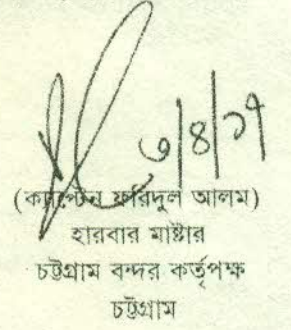 ৩|৪|১৭
(ক্যাপ্টেন ফরিদুল আলম)
হারবার মাষ্টার
চট্টগ্রাম বন্দর কর্তৃপক্ষ
চট্টগ্রাম